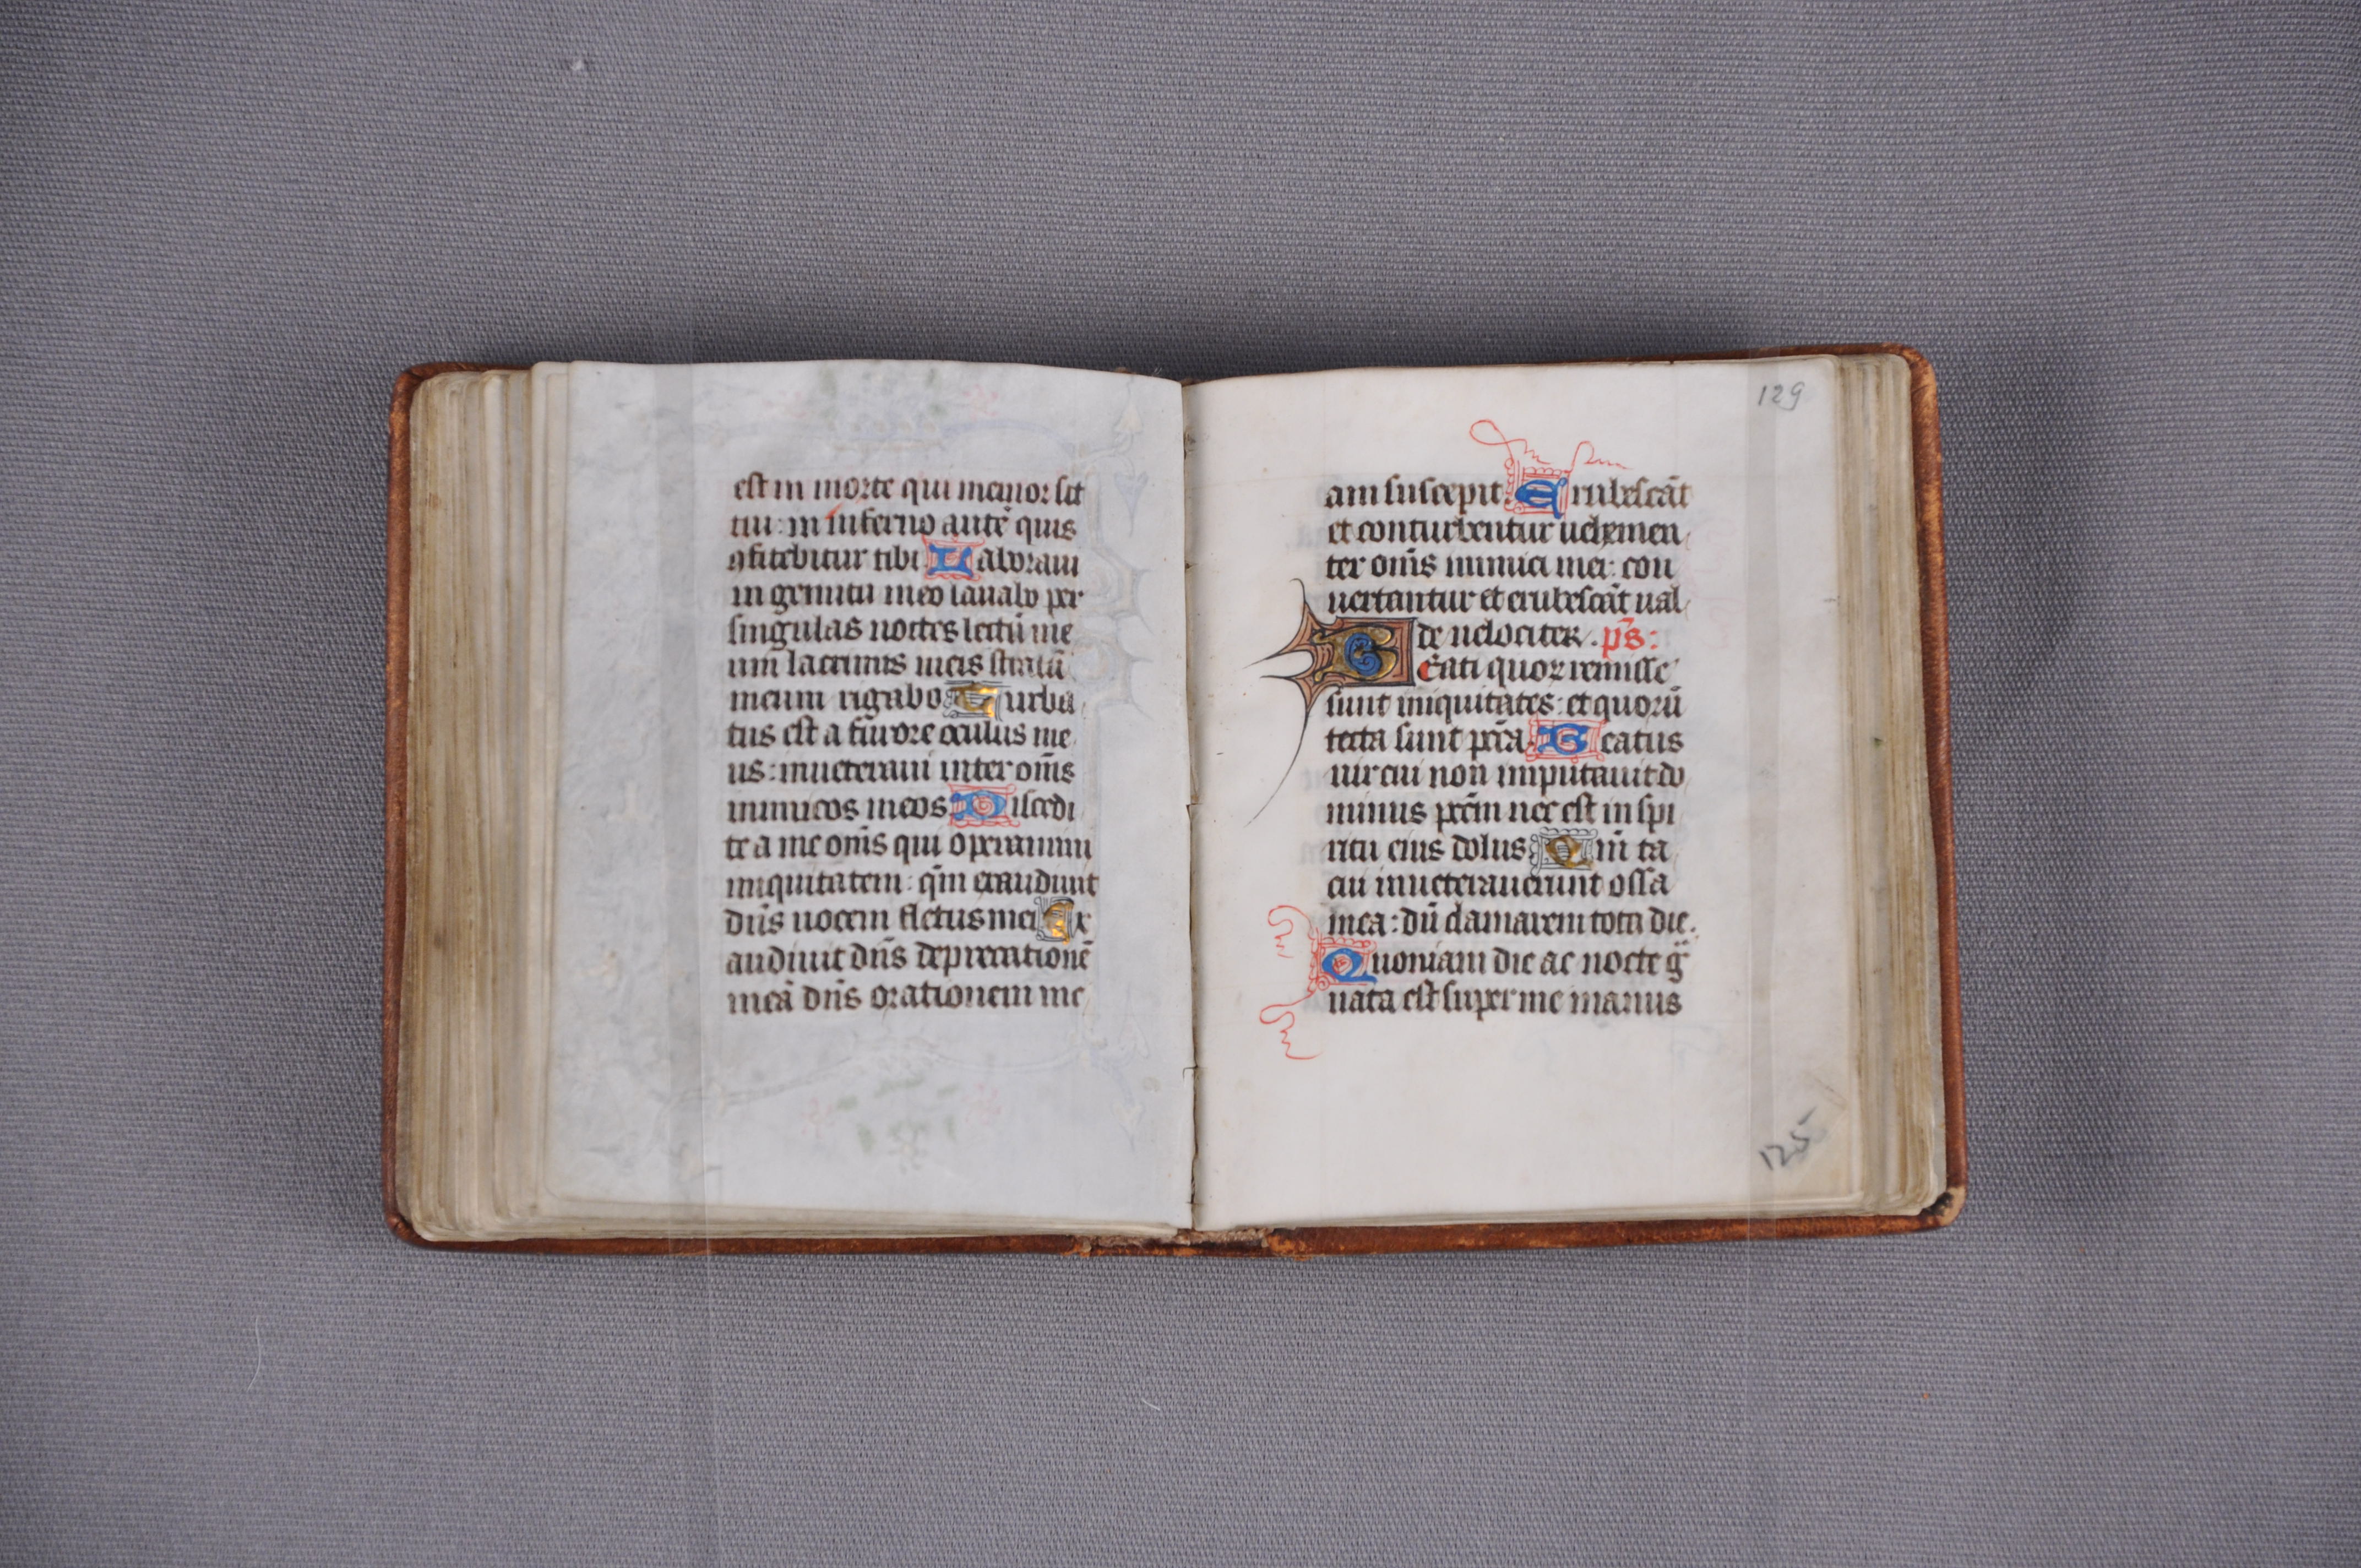 est in morte qui memor sit
tui: in inferno autē quis
ꝯfitebitur tibi Laboraui
in gemitu meo lauabo per
singulas noctes lectū me
um lacrimis meis stratū
meum rigabo Turba
tus est a furore oculus me
us: inueteraui inter om̄s
inimicos meos Discedi
te a me om̄s qui operamini
iniquitatem: qm̄ exaudiuit
dn̄s uocem fletus mei Ex
audiuit dn̄s deprecationē
meā dn̄s orationem me
129
am suscepit Erubescāt
et conturbentur uehemen
ter om̄s inimici mei: con
uertantur et erubescāt ual
de uelociter. ps̄:
Beati quoꝝ remisse
sunt iniquitates: et quorū
tecta sunt pc̄ca Beatus
uir cui non imputauit do
minus pcc̄m nec est in spi
ritu eius dolus Qm̄ ta
cui inueterauerunt ossa
mea: dū clamarem tota die.
Quoniam die ac nocte gͣ
uata est super me manus
125